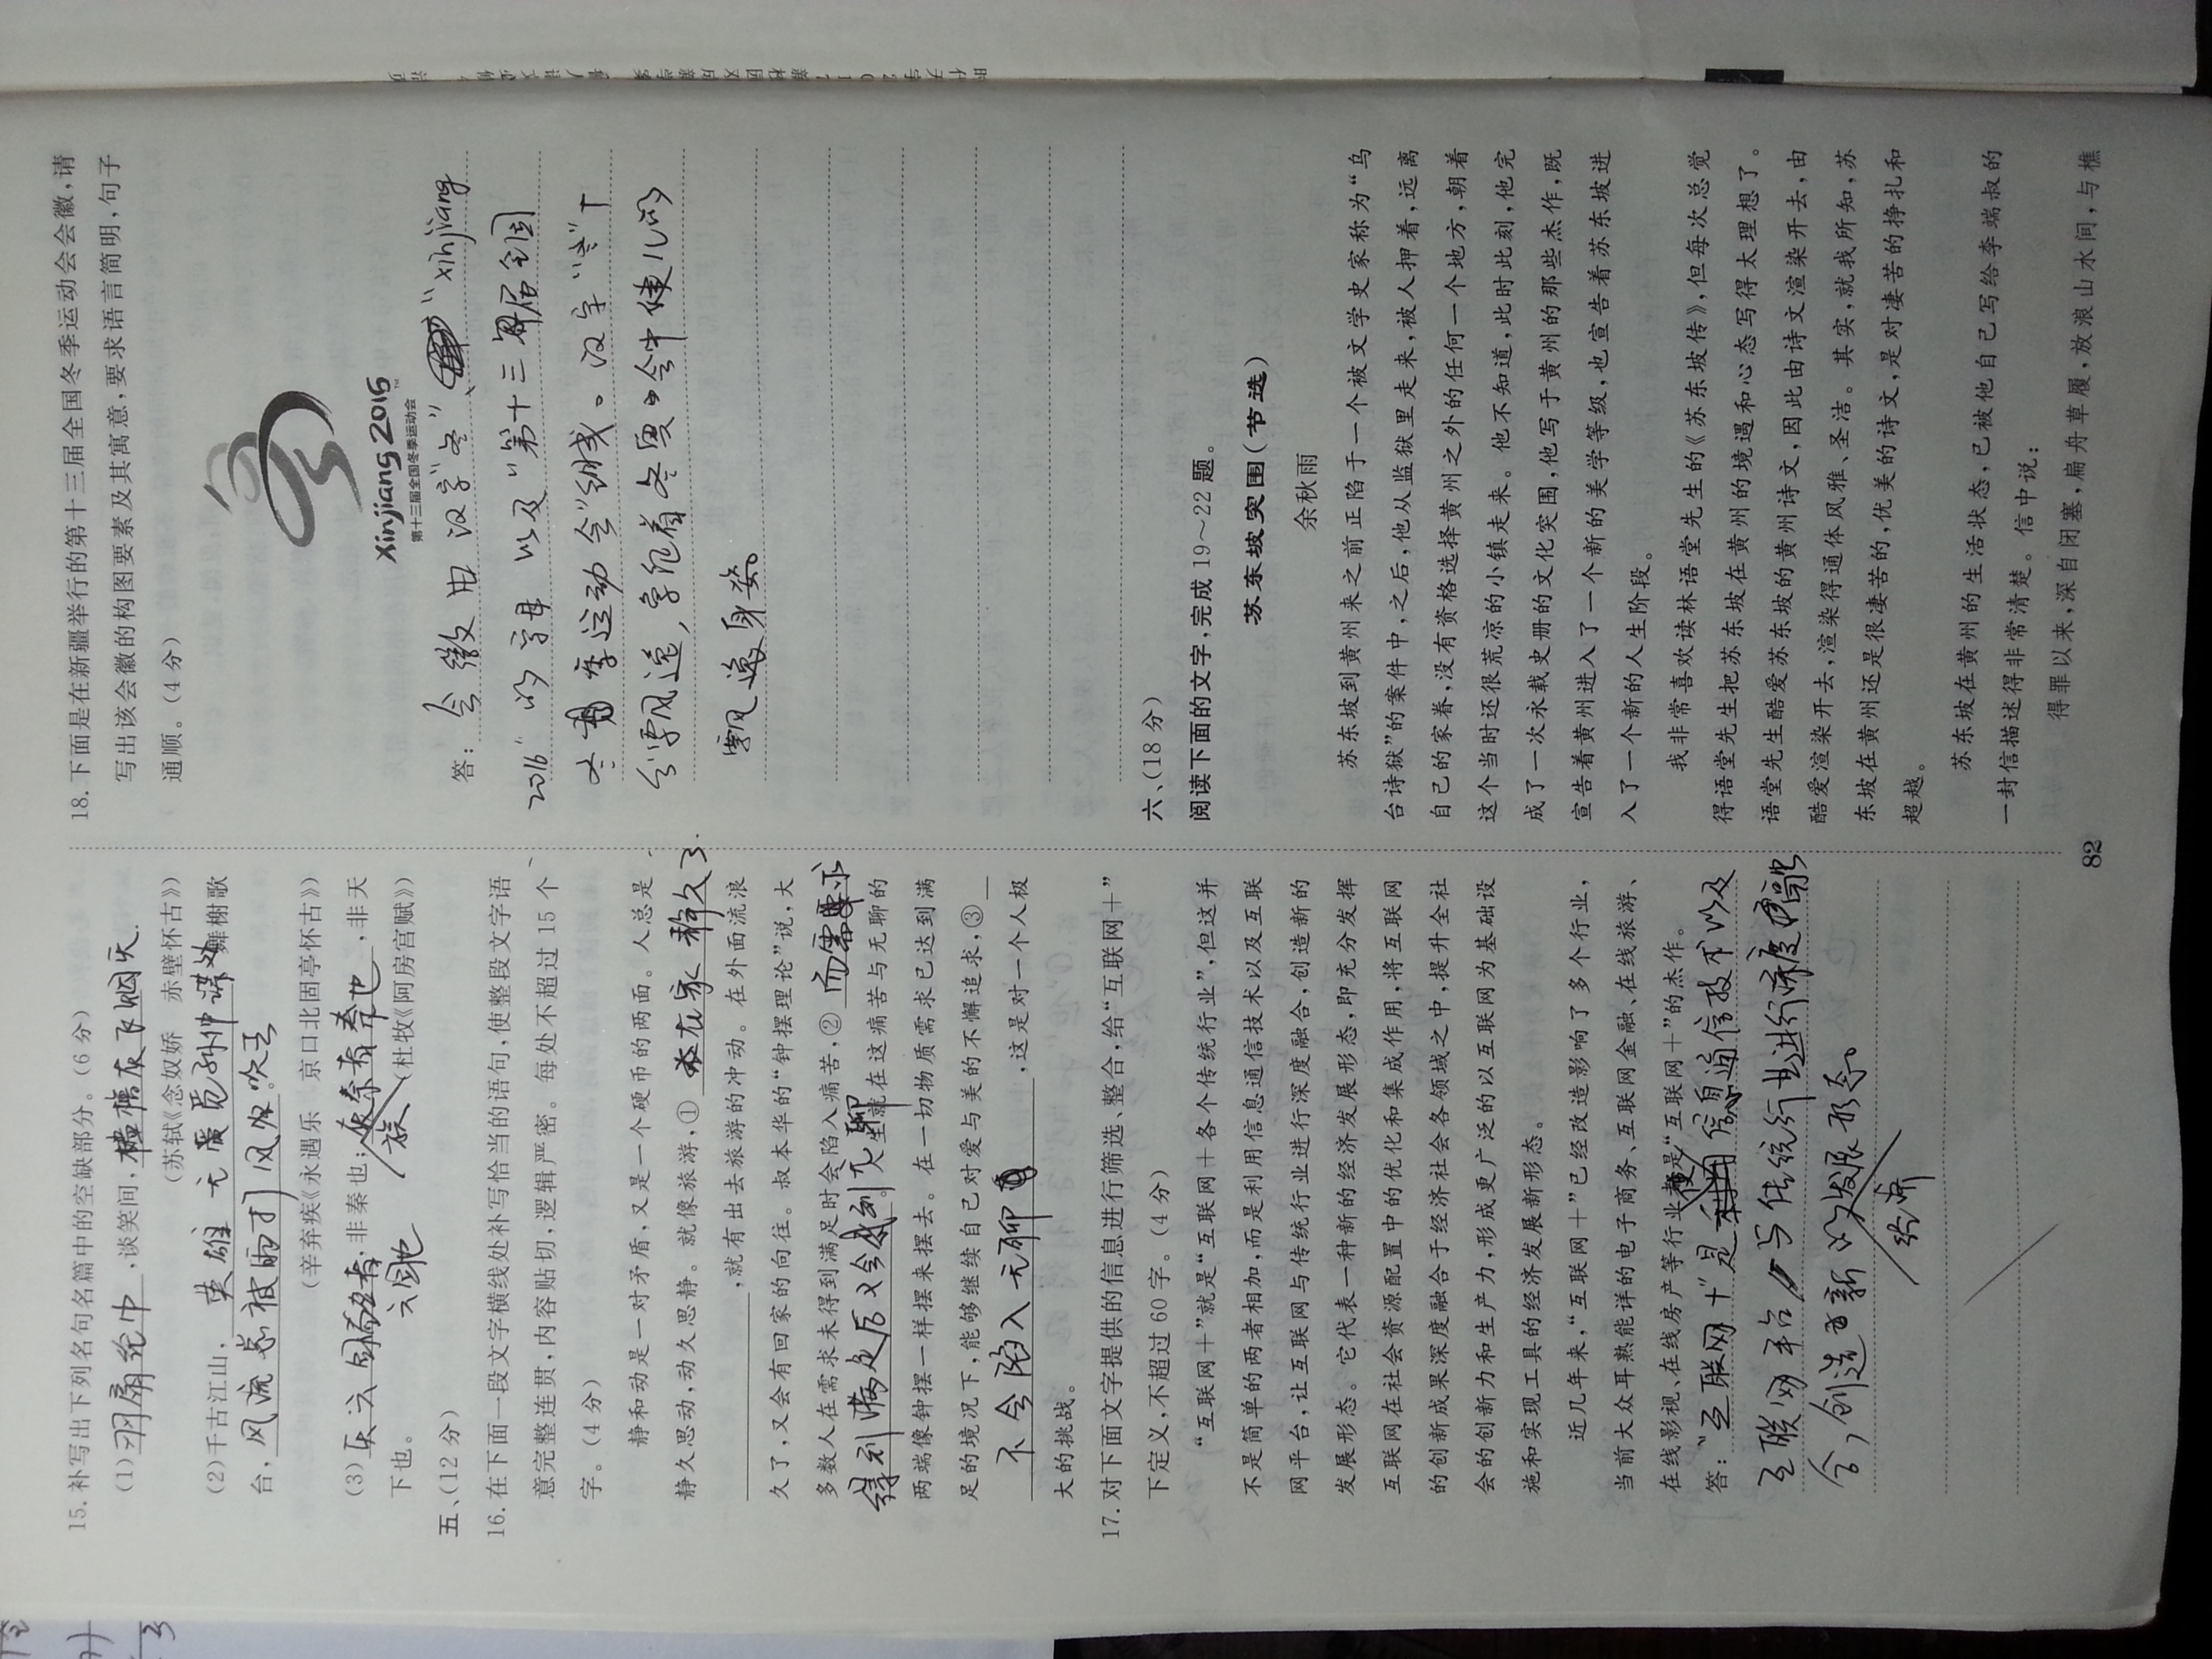 15. 补写出下列名句名篇中的空缺部分。(6 分)
(1) 羽扇纶巾 ,谈笑间, 樯橹灰飞烟灭.
(苏轼《念奴娇 赤壁怀古》)
(2)千古江山, 英雄无觅孙仲谋处 舞榭歌
台, 风流总被雨打风吹去
(辛弃疾《永遇乐 京口北固亭怀古》)
(3) 灭六国者 ,非秦也; 族秦者秦也 ,非天
六国也
下也。 (杜牧《阿房宫赋》)
五、(12 分)
16. 在下面一段文字横线处补写恰当的语句,使整段文字语
意完整连贯,内容贴切,逻辑严密。每处不超过 15 个
字。(4 分)
静和动是一对矛盾,又是一个硬币的两面。人总是
静久思动,动久思静。就像旅游,① 在家静久了
,就有出去旅游的冲动。在外面流浪
久了,又会有回家的向往。叔本华的“钟摆理论”说,大
多数人在需求未得到满足时会陷入痛苦,② 而需要求
得到满足后又会感到无聊 。人生就在这痛苦与无聊的
两端像钟摆一样摆来摆去。在一切物质需求已达到满
足的境况下,能够继续自己对爱与美的不懈追求,③
不会陷入无聊 ,这是对一个人极
大的挑战。
17. 对下面文字提供的信息进行筛选、整合,给“互联网+”
下定义,不超过 60 字。(4 分)
“互联网+”就是“互联网+各个传统行业”,但这并
不是简单的两者相加,而是利用信息通信技术以及互联
网平台,让互联网与传统行业进行深度融合,创造新的
发展形态。它代表一种新的经济发展形态,即充分发挥
互联网在社会资源配置中的优化和集成作用,将互联网
的创新成果深度融合于经济社会各领域之中,提升全社
会的创新力和生产力,形成更广泛的以互联网为基础设
施和实现工具的经济发展新形态。
近几年来,“互联网+”已经改造影响了多个行业,
当前大众耳熟能详的电子商务、互联网金融、在线旅游、
在线影视、在线房产等行业都是“互联网+”的杰作。
使
答: “互联网+”是利用信息通信技术以及
互联网平台与传统行业进行深度融
合,创造新的发展形态。
经济
18. 下面是在新疆举行的第十三届全国冬季运动会会徽,请
写出该会徽的构图要素及其寓意,要求语言简明,句子
通顺。(4 分)
Xinjiang 2016
TM
第十三届全国冬季运动会
答: 会徽由汉字“冬”、“xinjiang
2016”的字母 以及“第十三届全国
冬季运动会”组成。汉字“冬”十
分飘逸,象征着冬奥会中健儿的
飘逸身姿。
六、(18 分)
阅读下面的文字,完成 19～22 题。
苏东坡突围(节选)
余秋雨
苏东坡到黄州来之前正陷于一个被文学史家称为“乌
台诗狱”的案件中,之后,他从监狱里走来,被人押着,远离
自己的家眷,没有资格选择黄州之外的任何一个地方,朝着
这个当时还很荒凉的小镇走来。他不知道,此时此刻,他完
成了一次永载史册的文化突围,他写于黄州的那些杰作,既
宣告着黄州进入了一个新的美学等级,也宣告着苏东坡进
入了一个新的人生阶段。
我非常喜欢读林语堂先生的《苏东坡传》,但每次总觉
得语堂先生把苏东坡在黄州的境遇和心态写得太理想了。
语堂先生酷爱苏东坡的黄州诗文,因此由诗文渲染开去,由
酷爱渲染开去,渲染得通体风雅、圣洁。其实,就我所知,苏
东坡在黄州还是很凄苦的,优美的诗文,是对凄苦的挣扎和
超越。
苏东坡在黄州的生活状态,已被他自己写给李端叔的
一封信描述得非常清楚。信中说:
得罪以来,深自闭塞,扁舟草履,放浪山水间,与樵
82